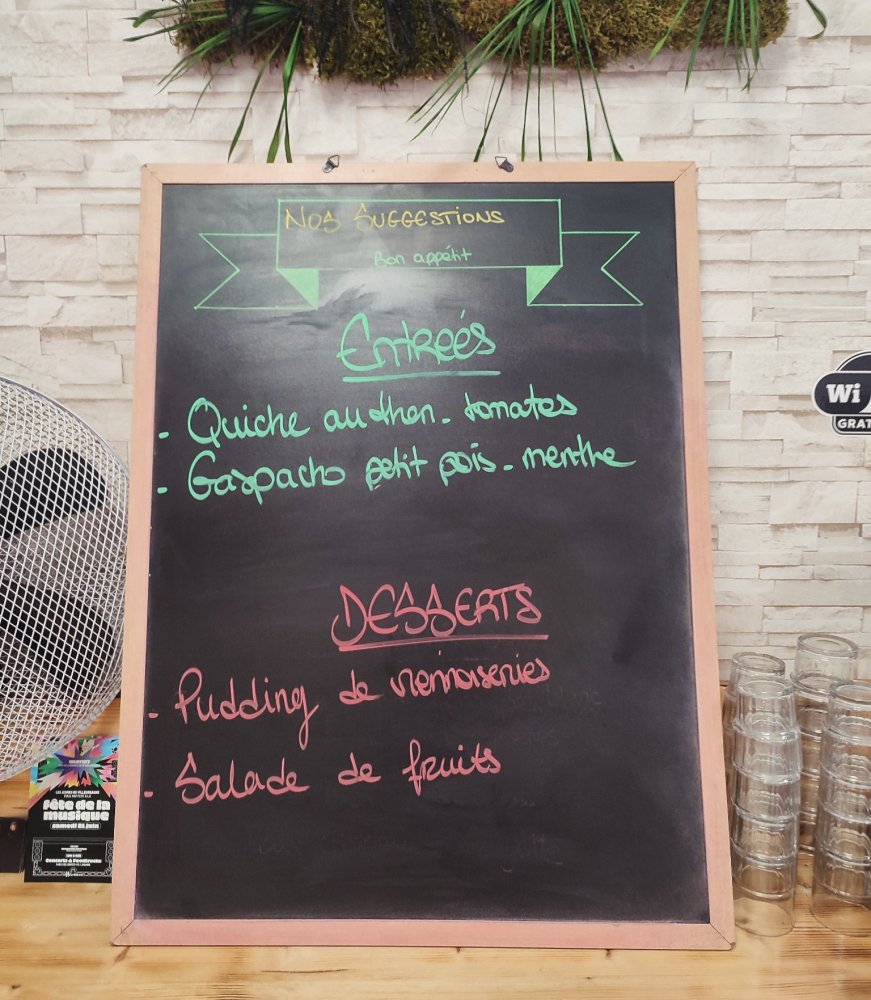 Nos Suggestions
Bon appétit
Entreés
- Quiche au thon - tomates
- Gazpacho petit pois - menthe
DESSERTS
- Pudding de viennoiseries
- Salade de fruits
Wi
GRAT
fête de la
musique
samedi 21 juin
Concerts & Foodtrucks